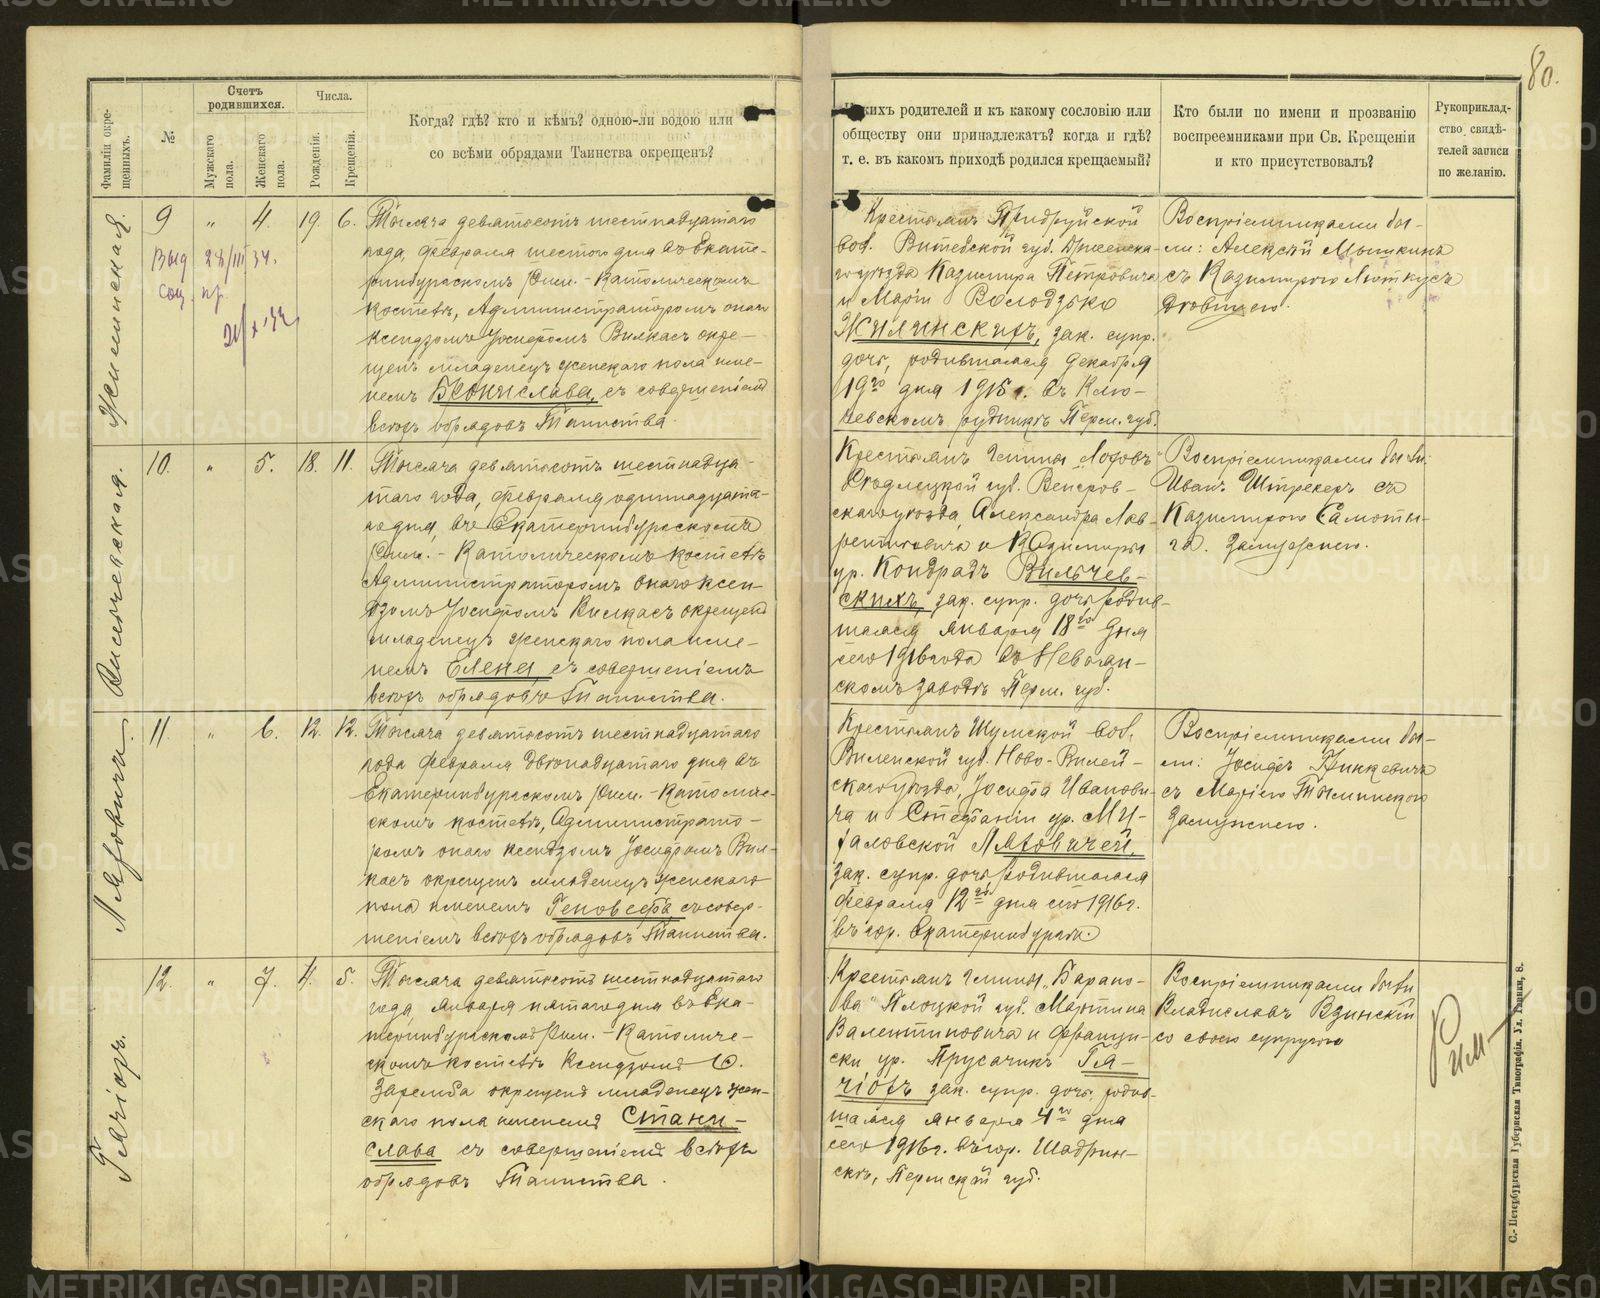 80.
Фамиліи окре-
щенныхъ.
№
Счетъ
родившихся.
Мужскаго
пола.
Женскаго
пола.
Числа.
Рожденія.
Крещенія.
Когда? гдѣ? кто и кѣмъ? одною-ли водою или
со всѣми обрядами Таинства окрещенъ?
какихъ родителей и къ какому сословію или
обществу они принадлежатъ? когда и гдѣ?
т. е. въ какомъ приходѣ родился крещаемый?
Кто были по имени и прозванію
воспреемниками при Св. Крещеніи
и кто присутствовалъ?
Рукоприклад-
ство свидѣ-
телей записи
по желанію.
Жилинская.
9 " 4. 19. 6.
Выд 28/III 34.
Тысяча девятьсотъ шестнадцатаго
года, февраля шестого дня въ Екате-
ринбургскомъ Рим.-Католическомъ
костелѣ, Администраторомъ онаго
Ксендзомъ Іосифомъ Вилкасъ окре-
щенъ младенецъ женскаго пола име-
немъ Бронислава, съ совершеніемъ
всѣхъ обрядовъ Таинства.
Крестьянъ Придруйской
вол. Витебской губ. Дриссен-
скаго уѣзда Казимира Петровича
и Маріи Володзько
Жилинскихъ, зак. супр.
дочь, родившаяся декабря
19го дня 1915г. въ Клю-
чевскомъ рудникѣ Перм. губ.
Воспріемниками бы-
ли: Алексѣй Мышкинъ
съ Казимирою Люткусъ
дѣвицею.
Вильчевская.
10. " 5. 18. 11.
Тысяча девятьсотъ шестнадца-
таго года, февраля одиннадцата-
го дня, въ Екатеринбургскомъ
Рим.-Католическомъ костелѣ
Администраторомъ онаго ксен-
дзомъ Іосифомъ Вилкасъ окрещенъ
младенецъ женскаго пола име-
немъ Елена, съ совершеніемъ
всѣхъ обрядовъ Таинства.
Крестьянъ гмины „Лоховъ"
Сѣдлецкой губ. Венгров-
скаго уѣзда, Александра Лав-
рентьевича и Казимиры
ур. Кондрадъ Вильчев-
скихъ, зак. супр. дочь, родив-
шаяся января 18го дня
сего 1916 года въ Невьян-
скомъ заводѣ Перм. губ.
Воспріемниками были:
Иванъ Штрекеръ съ
Казимирою Самоты-
га замужнею.
Ляховичъ.
11. " 6. 12. 12.
Тысяча девятьсотъ шестнадцатаго
года февраля двѣнадцатаго дня въ
Екатеринбургскомъ Рим.-Католиче-
скомъ костелѣ, Администрато-
ромъ онаго ксендзомъ Іосифомъ Вил-
касъ окрещенъ младенецъ женскаго
пола именемъ Геновефа, съ совер-
шеніемъ всѣхъ обрядовъ Таинства.
Крестьянъ Шумской вол.
Виленской губ. Ново-Вилей-
скаго уѣзда, Іосифа Иванови-
ча и Стефаніи ур. Ми-
галовской Ляховичей,
зак. супр. дочь родившаяся
февраля 12го дня сего 1916г.
въ гор. Екатеринбургѣ.
Воспріемниками бы-
ли: Іосифъ
съ Маріею
замужнею.
Гляціогъ.
12. " 7. 4. 5.
Тысяча девятьсотъ шестнадцатаго
года, января пятаго дня въ Ека-
теринбургскомъ Рим.-Католиче-
скомъ костелѣ Ксендзомъ С.
Заремба окрещенъ младенецъ жен-
скаго пола именемъ Стани-
слава съ совершеніемъ всѣхъ
обрядовъ Таинства.
Крестьянъ гмины „Барано-
ва" Плоцкой губ. Мартина
Валентиновича и Францис-
ки ур. Прусачикъ
зак. супр. дочь, родив-
шаяся января 4го дня
сего 1916г. въ гор. Шадрин-
скѣ, Пермской губ.
Воспріемниками были
Владиславъ Взинскій
со своею супругою
С.-Петербургская Губернская Типографія.
METRIKI.GASO-URAL.RU